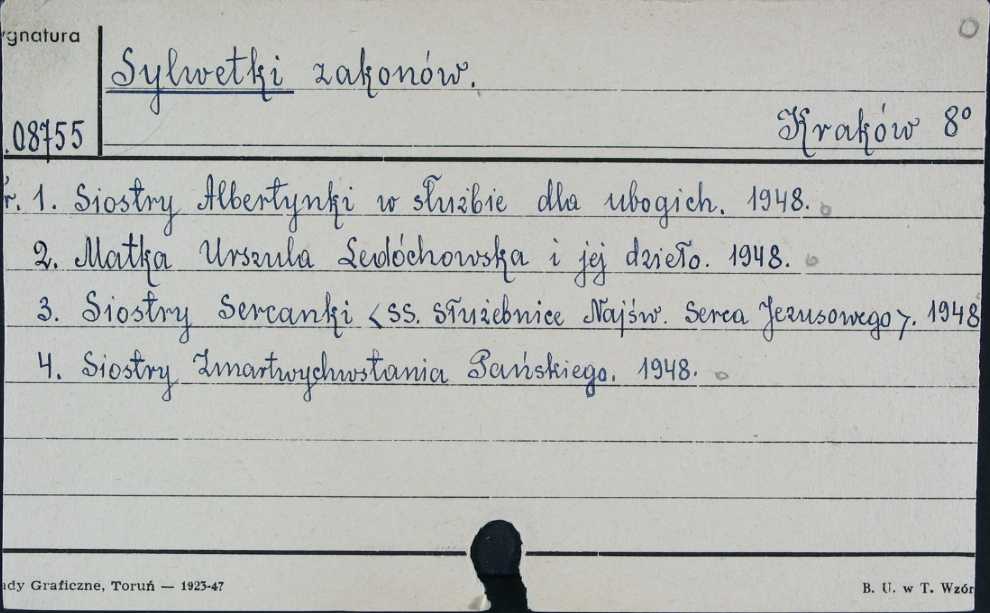 ygnatura
Sylwetki zakonów.
.08755
Kraków 8°
r. 1. Siostry Albertynki w służbie dla ubogich. 1948.
2. Matka Urszula Ledóchowska i jej dzieło. 1948.
3. Siostry Sercanki <SS. Służebnice Najśw. Serca Jezusowego>. 1948
4. Siostry Zmartwychwstania Pańskiego. 1948.
ady Graficzne, Toruń — 1923-47
B. U. w T. Wzór